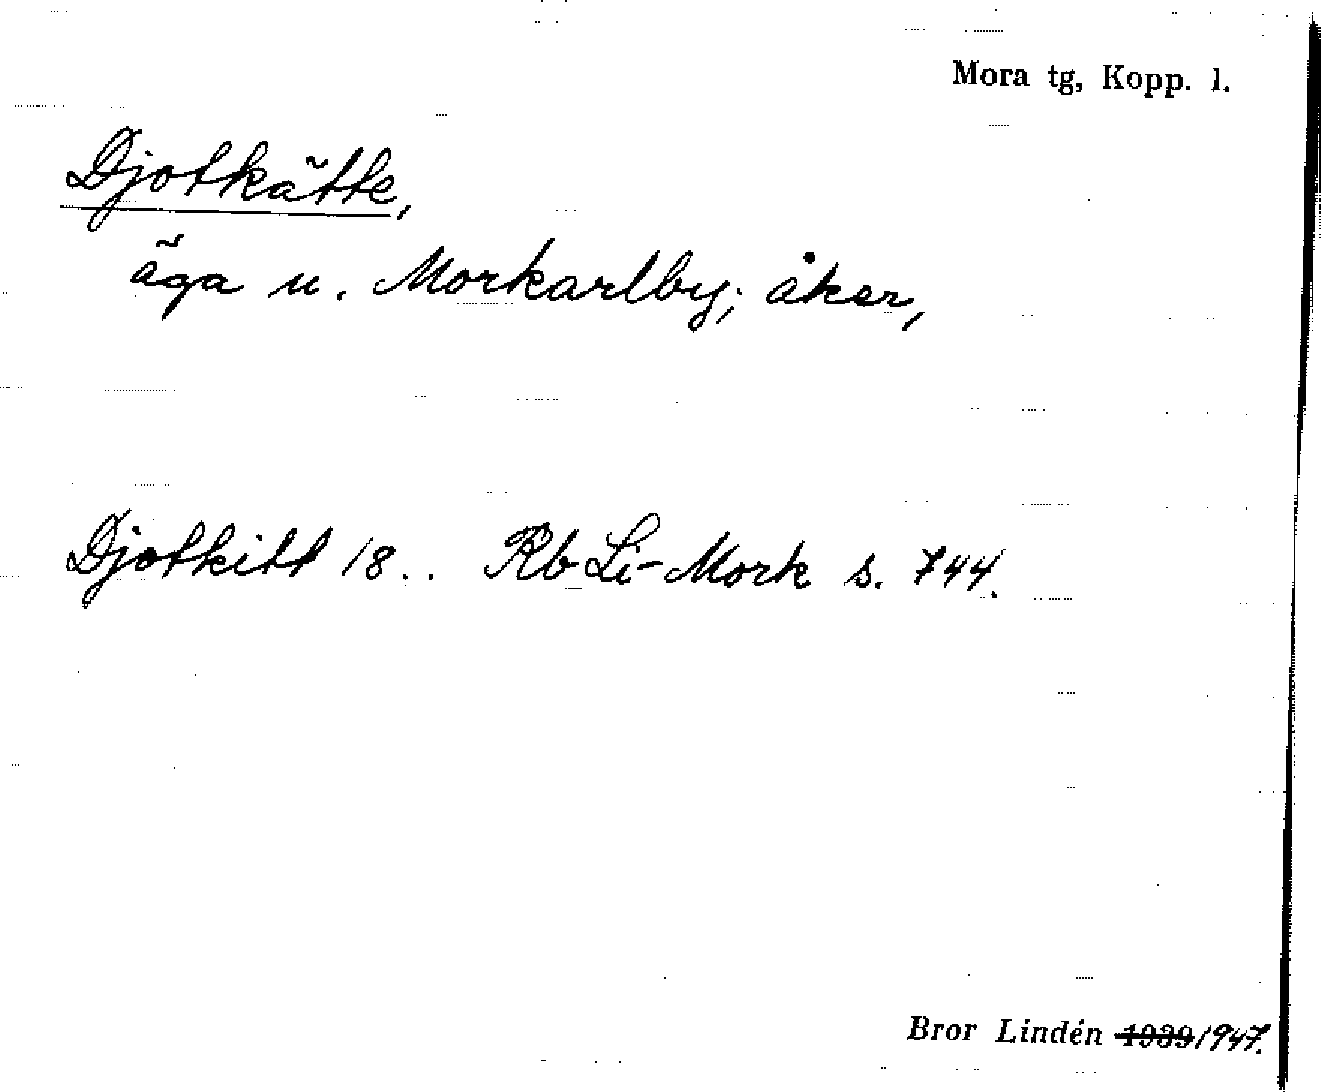 Mora tg, Kopp. l.
Djotkätte,
äga u. Morkarlby; åker,
Djotkitt 18.. Rb Li-Mork s. 744.
Bror Lindén 1939 1947.